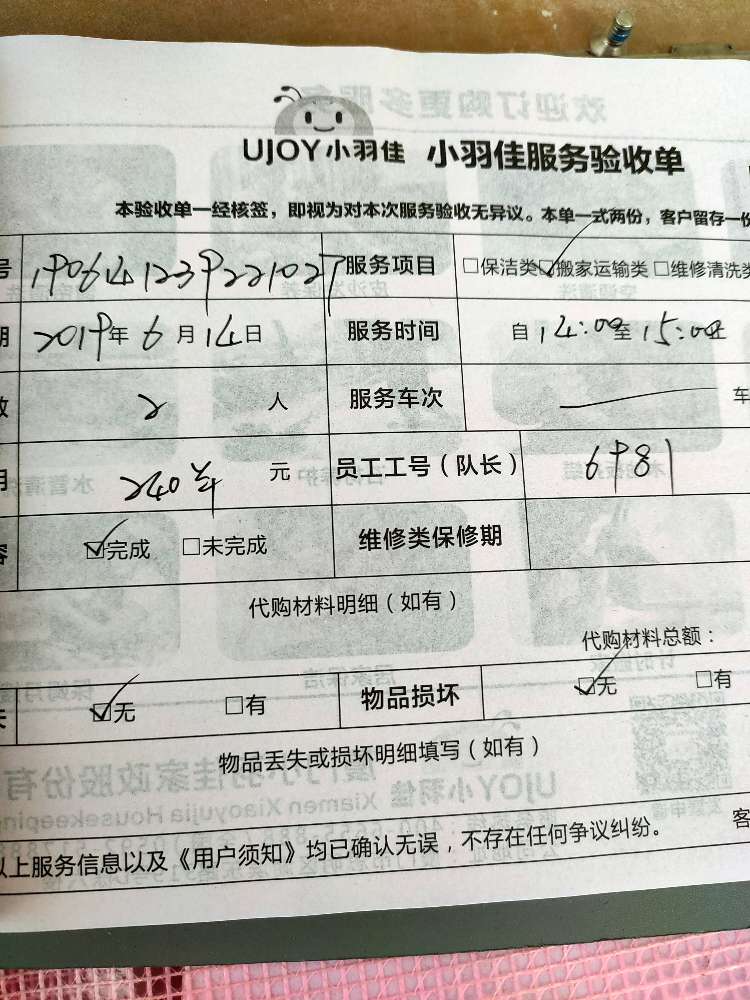 UJOY小羽佳 小羽佳服务验收单
本验收单一经核签，即视为对本次服务验收无异议。本单一式两份，客户留存一份
号 190614123922102T 服务项目 □保洁类 ☑搬家运输类 □维修清洗类
期 2019年6月14日 服务时间 自14:00至15:00止
数 2 人 服务车次 — 车
用 240 元 员工工号（队长） 6981
容 ☑完成 □未完成 维修类保修期
代购材料明细（如有）
代购材料总额：
失 ☑无 □有 物品损坏 ☑无 □有
物品丢失或损坏明细填写（如有）
以上服务信息以及《用户须知》均已确认无误，不存在任何争议纠纷。 客